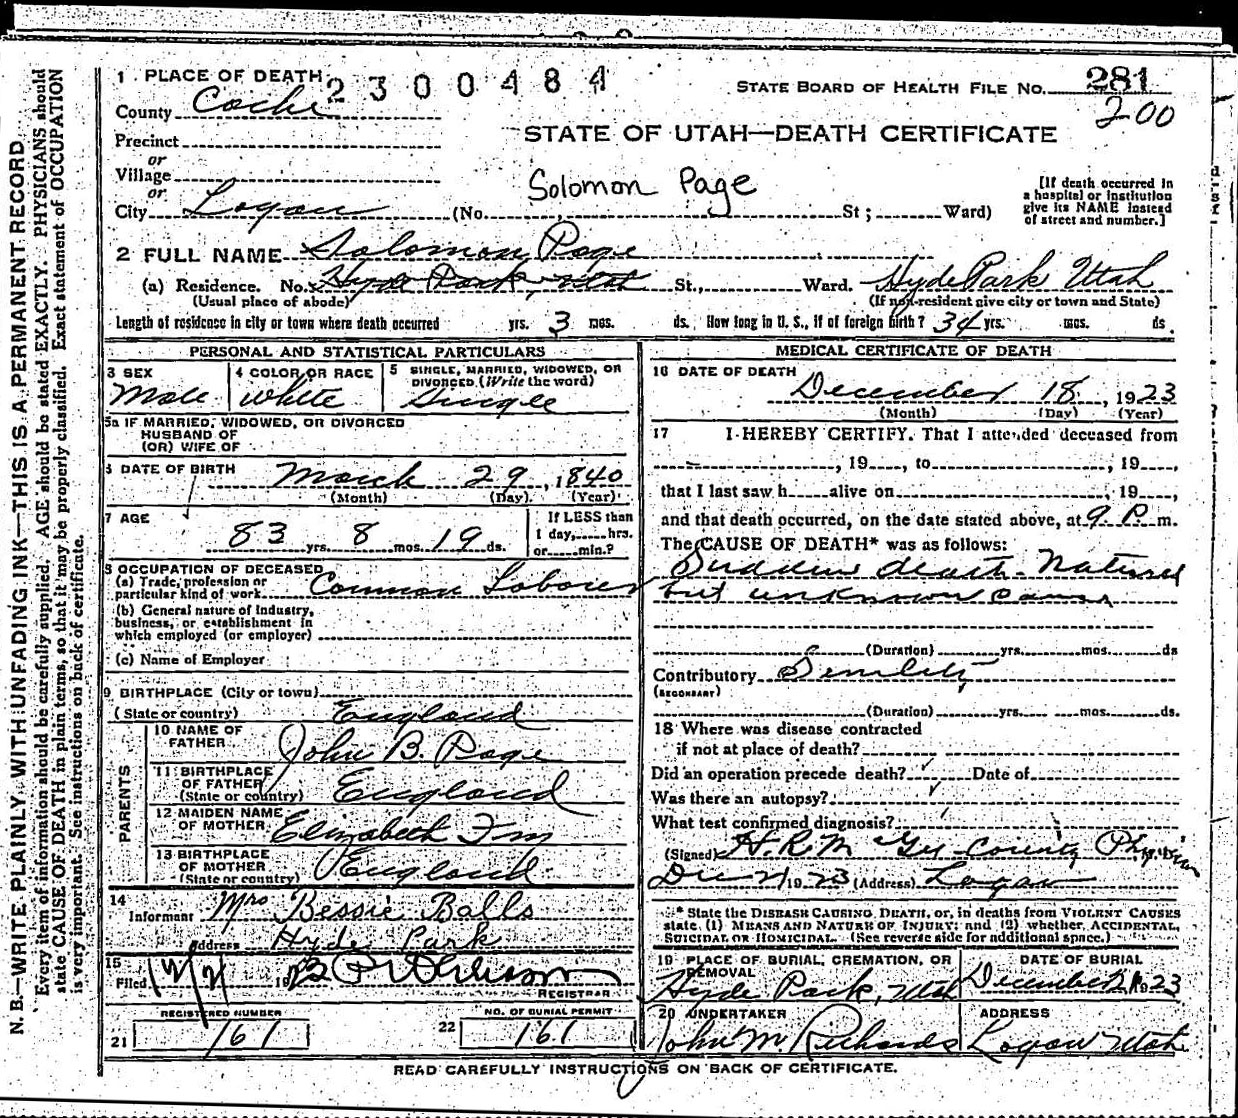 1 PLACE OF DEATH 2300484
STATE BOARD OF HEALTH FILE NO. 281
200
County Cache
STATE OF UTAH—DEATH CERTIFICATE
Precinct
or
Village
or
City Logan (No. St; Ward)
Solomon Page
[If death occurred in
a hospital or institution
give its NAME instead
of street and number.]
2 FULL NAME Solomon Page
(a) Residence. No. Hyde Park, Utah St., Ward. Hyde Park Utah
(Usual place of abode) (If non-resident give city or town and State)
Length of residence in city or town where death occurred yrs. 3 mos. ds. How long in U. S., if of foreign birth? 34 yrs. mos. ds.
PERSONAL AND STATISTICAL PARTICULARS
3 SEX Male
4 COLOR OR RACE white
5 SINGLE, MARRIED, WIDOWED, OR
DIVORCED. (Write the word)
Single
5a IF MARRIED, WIDOWED, OR DIVORCED
HUSBAND OF
(OR) WIFE OF
6 DATE OF BIRTH March 29, 1840
(Month) (Day) (Year)
7 AGE 83 yrs. 8 mos. 19 ds.
If LESS than
1 day, hrs.
or min.?
8 OCCUPATION OF DECEASED
(a) Trade, profession or
particular kind of work Common Laborer
(b) General nature of industry,
business, or establishment in
which employed (or employer)
(c) Name of Employer
9 BIRTHPLACE (City or town)
(State or country) England
PARENTS
10 NAME OF
FATHER John B. Page
11 BIRTHPLACE
OF FATHER
(State or country) England
12 MAIDEN NAME
OF MOTHER Elizabeth
13 BIRTHPLACE
OF MOTHER
(State or country) England
14
Informant Mrs Bessie Balls
Address Hyde Park
15
Filed 12/21 1923
REGISTRAR
REGISTERED NUMBER
21 161
NO. OF BURIAL PERMIT
22 161
MEDICAL CERTIFICATE OF DEATH
16 DATE OF DEATH
December 18, 1923
(Month) (Day) (Year)
17 I HEREBY CERTIFY. That I attended deceased from
, 19 , to , 19 ,
that I last saw h alive on , 19 ,
and that death occurred, on the date stated above, at 9 P. m.
The CAUSE OF DEATH* was as follows:
Sudden death. Natural
but unknown cause
(Duration) yrs. mos. ds
Contributory Senility
(SECONDARY)
(Duration) yrs. mos. ds.
18 Where was disease contracted
if not at place of death?
Did an operation precede death? Date of
Was there an autopsy?
What test confirmed diagnosis?
(Signed) County Physician
Dec 21 1923 (Address) Logan
* State the DISEASE CAUSING DEATH, or, in deaths from VIOLENT CAUSES
state (1) MEANS AND NATURE OF INJURY; and (2) whether ACCIDENTAL,
SUICIDAL OR HOMICIDAL. (See reverse side for additional space.)
19 PLACE OF BURIAL, CREMATION, OR
REMOVAL
Hyde Park, Utah
DATE OF BURIAL
December 21 1923
20 UNDERTAKER
John M. Richards
ADDRESS
Logan Utah
READ CAREFULLY INSTRUCTIONS ON BACK OF CERTIFICATE.
N. B.—WRITE PLAINLY, WITH UNFADING INK—THIS IS A PERMANENT RECORD
Every item of information should be carefully supplied. AGE should be stated EXACTLY. PHYSICIANS should
state CAUSE OF DEATH in plain terms, so that it may be properly classified. Exact statement of OCCUPATION
is very important. See instructions on back of certificate.